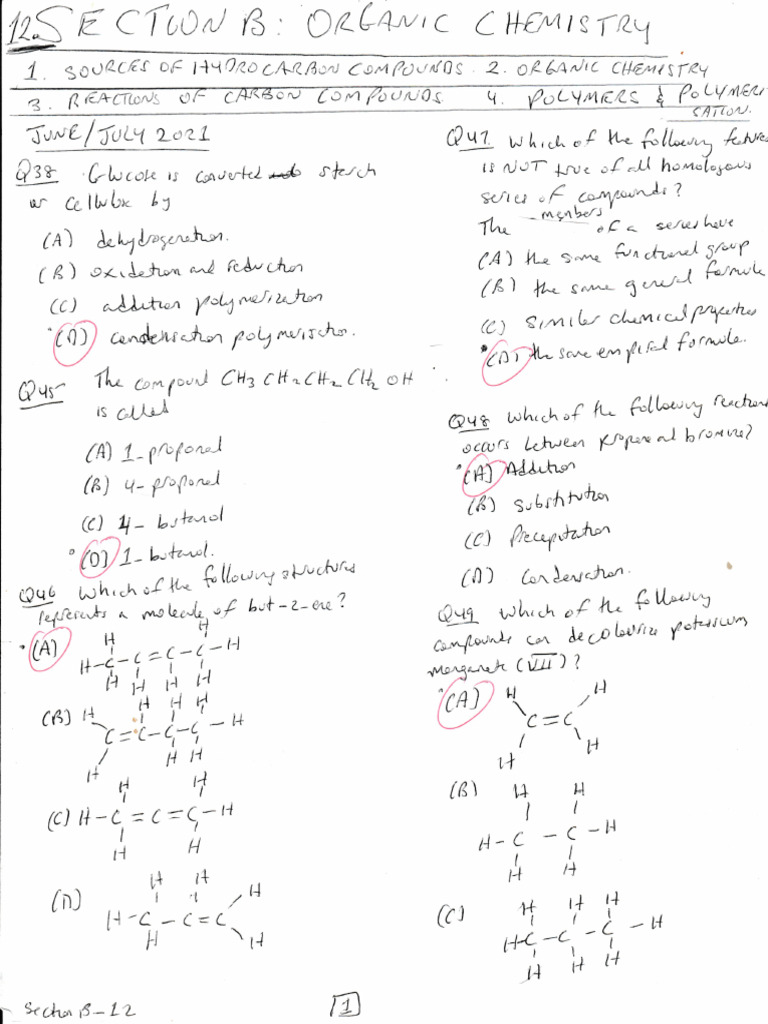 12. SECTION B: ORGANIC CHEMISTRY
1. SOURCES OF HYDROCARBON COMPOUNDS. 2. ORGANIC CHEMISTRY
3. REACTIONS OF CARBON COMPOUNDS. 4. POLYMERS & POLYMERISATION.
JUNE/JULY 2021
Q38 Glucose is converted to starch
or cellulose by
(A) dehydrogenation.
(B) oxidation and reduction
(C) addition polymerization
(D) condensation polymerisation.
Q45 The compound CH3 CH2 CH2 CH2 OH
is called
(A) 1-propanol
(B) 4-propanol
(C) 4-butanol
(D) 1-butanol.
Q46 Which of the following structures
represents a molecule of but-2-ene?
(A)
H H
H-C-C=C-C-H
H H H H
(B) H H H H
C=C-C-C-H
H H H
(C) H H
H-C=C=C-H
H H
(D) H H H
H-C-C=C
H H
Section B-12
Q47 Which of the following features
is NOT true of all homologous
series of compounds?
The members of a series have
(A) the same functional group
(B) the same general formula
(C) similar chemical properties
(D) the same empirical formula.
Q48 Which of the following reactions
occurs between propene and bromine?
(A) Addition
(B) Substitution
(C) Precipitation
(D) Condensation.
Q49 Which of the following
compounds can decolourize potassium
manganate (VII)?
(A) H H
C=C
H H
(B) H H
H-C-C-H
H H
(C) H H H
H-C-C-C-H
H H H
1